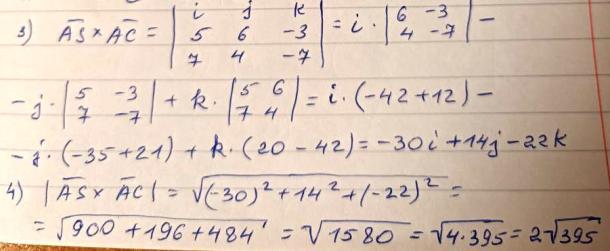 3) AS̅ × AC̅ = | i j k | = i · | 6 -3 | -
| 5 6 -3 | | 4 -7 |
| 7 4 -7 |
- j · | 5 -3 | + k · | 5 6 | = i · (-42 + 12) -
| 7 -7 | | 7 4 |
- j · (-35 + 21) + k · (20 - 42) = -30i + 14j - 22k
4) | AS̅ × AC̅ | = √((-30)² + 14² + (-22)²) =
= √(900 + 196 + 484) = √1580 = √(4·395) = 2√395